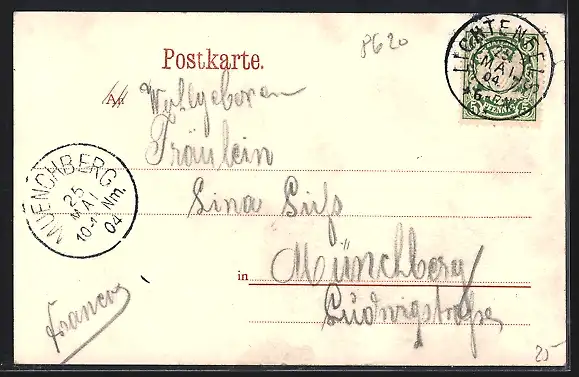 8620
Postkarte.
An Wollgeboren
Fräulein
Lina Süß
in Münchberg
Ludwigstraße
Franco
25
LICHTENFELS
MAI
04
5 PFENNIG 5
MUENCHBERG
25
MAI
10-1 Nm.
04